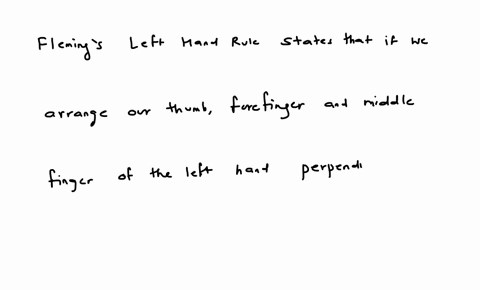 Fleming's Left Hand Rule states that if we
arrange our thumb, forefinger and middle
finger of the left hand perpendi